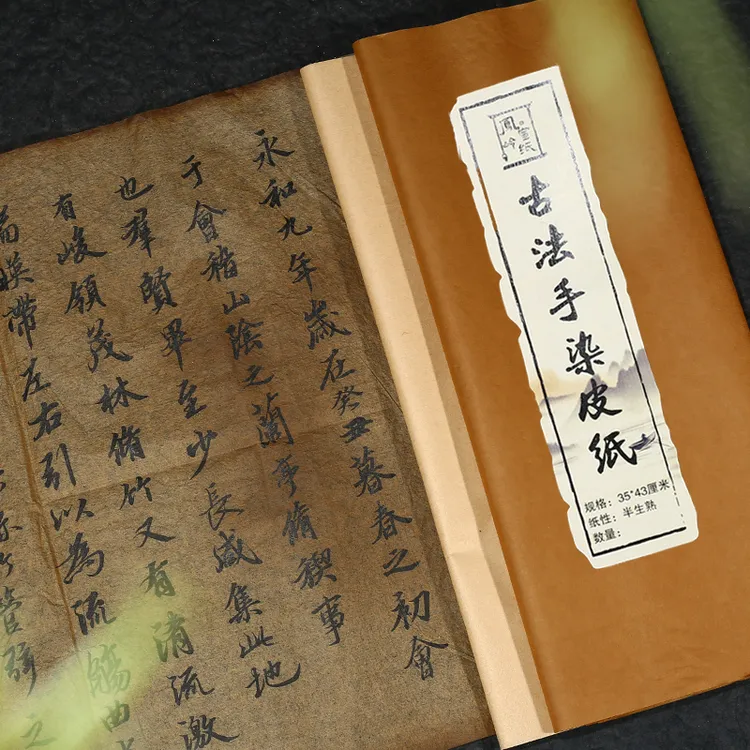 永和九年歲在癸丑暮春之初會
于會稽山陰之蘭亭脩稧事
也羣賢畢至少長咸集此地
有峻領茂林脩竹又有清流激
暎帶左右引以為流觴曲
竹管弦之
鳳
宣纸
古法手染皮纸
规格：35*43厘米
纸性：半生熟
数量：